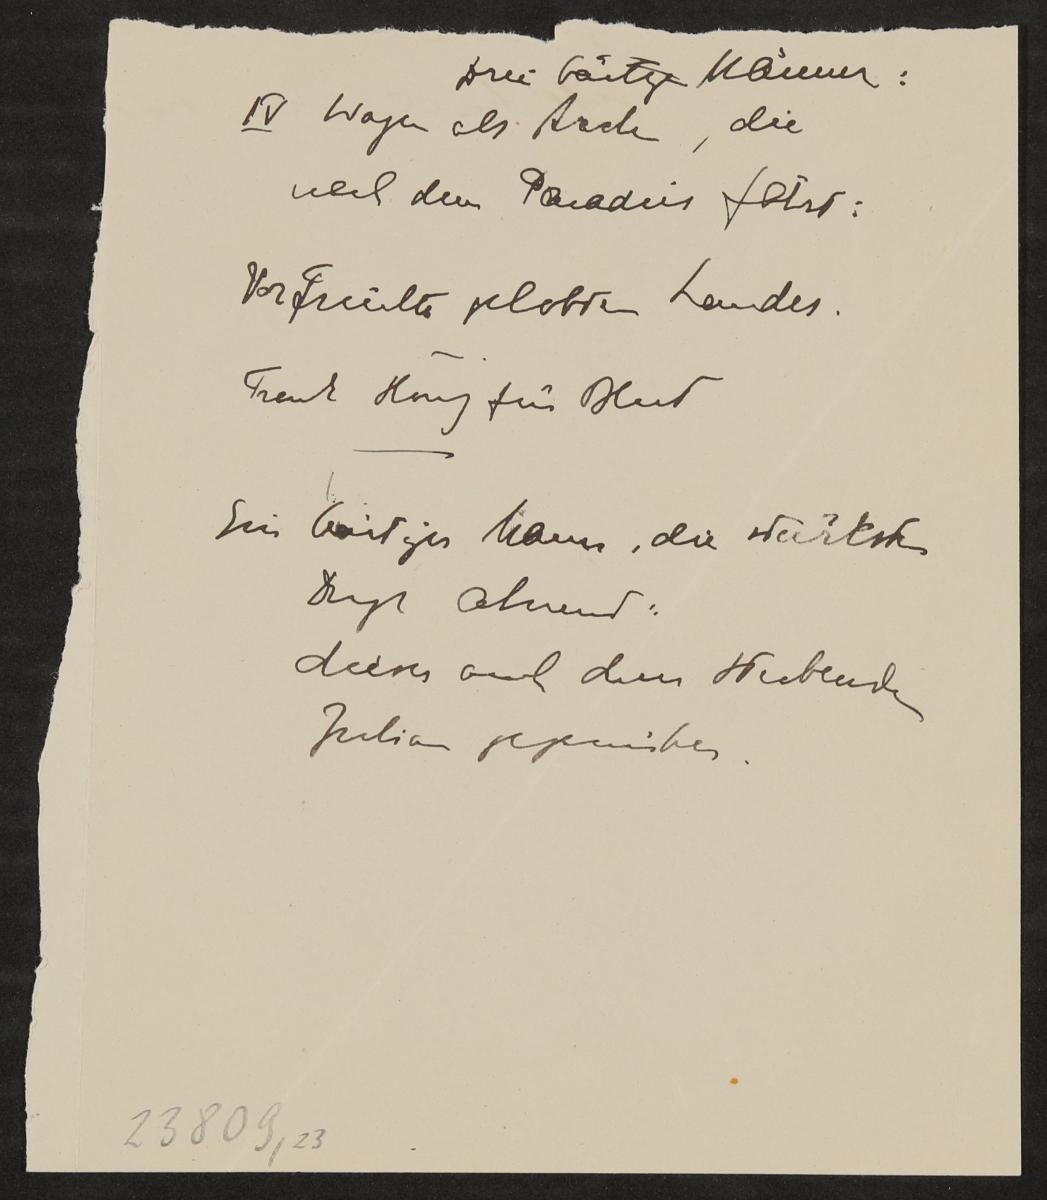 Drei bärtige Männer:
IV Wagen als Arche, die
nach dem Paradies fährt:
Vor Früchte gelobten Landes.
Trank Honig für Blut
Ein bärtiger Mann, die stärksten
Dinge ahnend:
dieses auch dem Sterbenden
Julian gegenüber.
23809,23